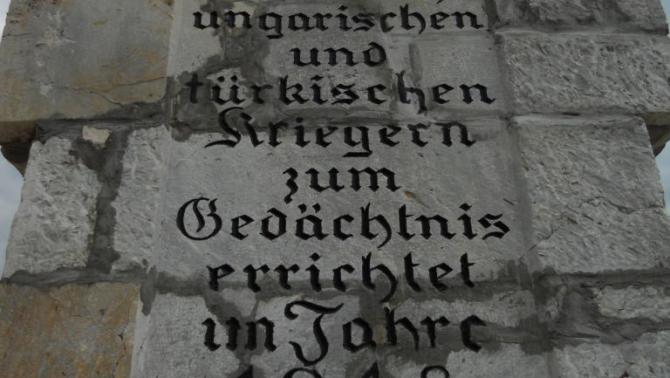 ungarischen
und
türkischen
Kriegern
zum
Gedächtnis
errichtet
im Jahre